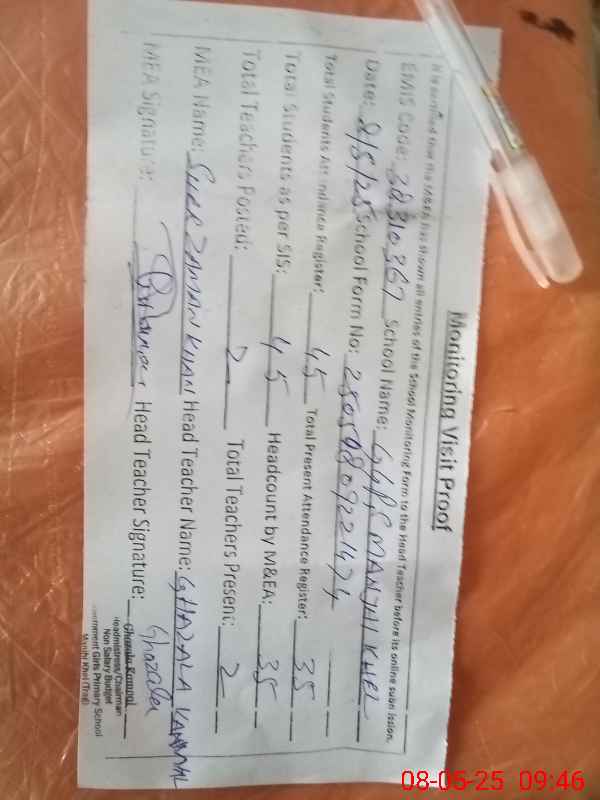 Monitoring Visit Proof
It is certified that the M&EA has shown all entries of the School Monitoring Form to the Head Teacher before its online submission.
EMIS Code: 38310367 School Name: GGPS MANJHI KHEL
Date: 8/5/25 School Form No:
Total Students Attendance Register: 45 Total Present Attendance Register: 35
Total Students as per SIS: 45 Headcount by M&EA: 35
Total Teachers Posted: 2 Total Teachers Present: 2
MEA Name: ZAMAN KHAN Head Teacher Name: GHAZALA KANWAL
MEA Signature: Head Teacher Signature: Ghazala
Ghazala Kanwal
Headmistress/Chairman
Non Salary Budget
ernment Girls Primary School
Manjhi Khel (Trag)
08-05-25 09:46